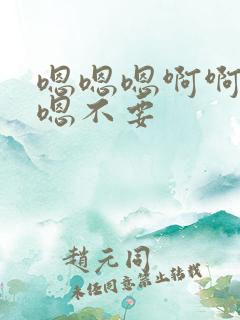 嗯嗯嗯啊啊
嗯不要
趙元同
未经同意禁止转载